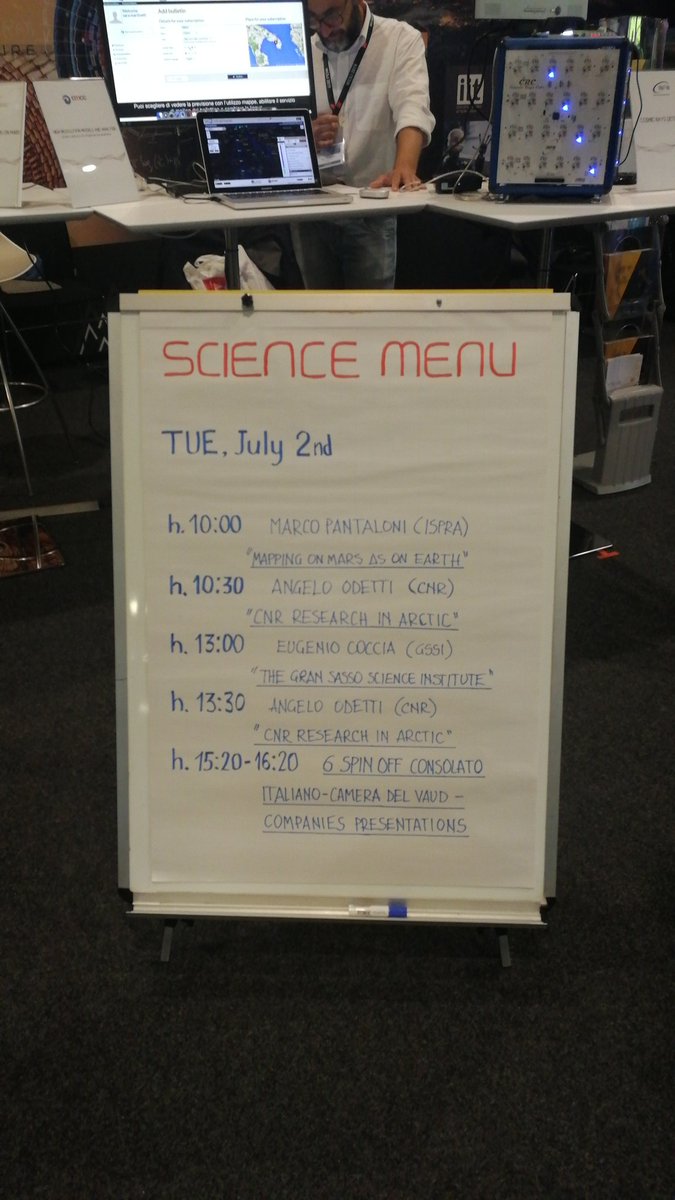 Add bulletin
Puoi scegliere di vedere la previsione con l'utilizzo mappe, abilitare il servizio
CRC
SCIENCE MENU
TUE, July 2nd
h. 10:00 MARCO PANTALONI (ISPRA)
"MAPPING ON MARS AS ON EARTH"
h. 10:30 ANGELO ODETTI (CNR)
"CNR RESEARCH IN ARCTIC"
h. 13:00 EUGENIO COCCIA (GSSI)
"THE GRAN SASSO SCIENCE INSTITUTE"
h. 13:30 ANGELO ODETTI (CNR)
"CNR RESEARCH IN ARCTIC"
h. 15:20-16:20 6 SPIN OFF CONSOLATO
ITALIANO-CAMERA DEL VAUD-
COMPANIES PRESENTATIONS